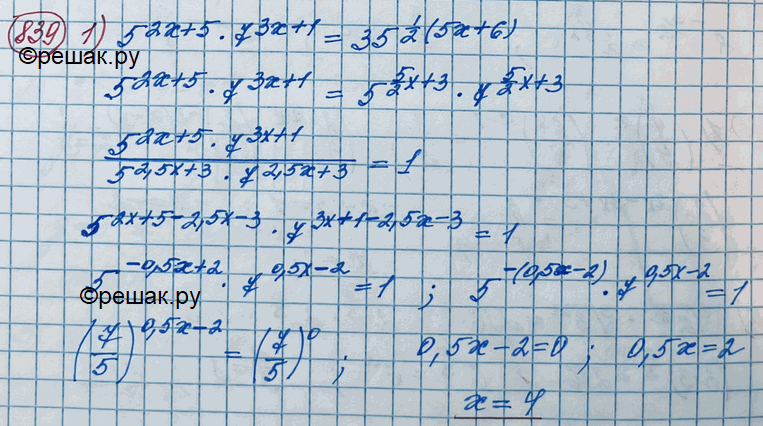 839 1) 5^(2x+5) · 7^(3x+1) = 35^(1/2(5x+6))
©решак.ру
5^(2x+5) · 7^(3x+1) = 5^(5/2x+3) · 7^(5/2x+3)
(5^(2x+5) · 7^(3x+1)) / (5^(2,5x+3) · 7^(2,5x+3)) = 1
5^(2x+5-2,5x-3) · 7^(3x+1-2,5x-3) = 1
5^(-0,5x+2) · 7^(0,5x-2) = 1 ; 5^(-(0,5x-2)) · 7^(0,5x-2) = 1
©решак.ру
(7/5)^(0,5x-2) = (7/5)^0 ; 0,5x-2=0 ; 0,5x=2
x = 4